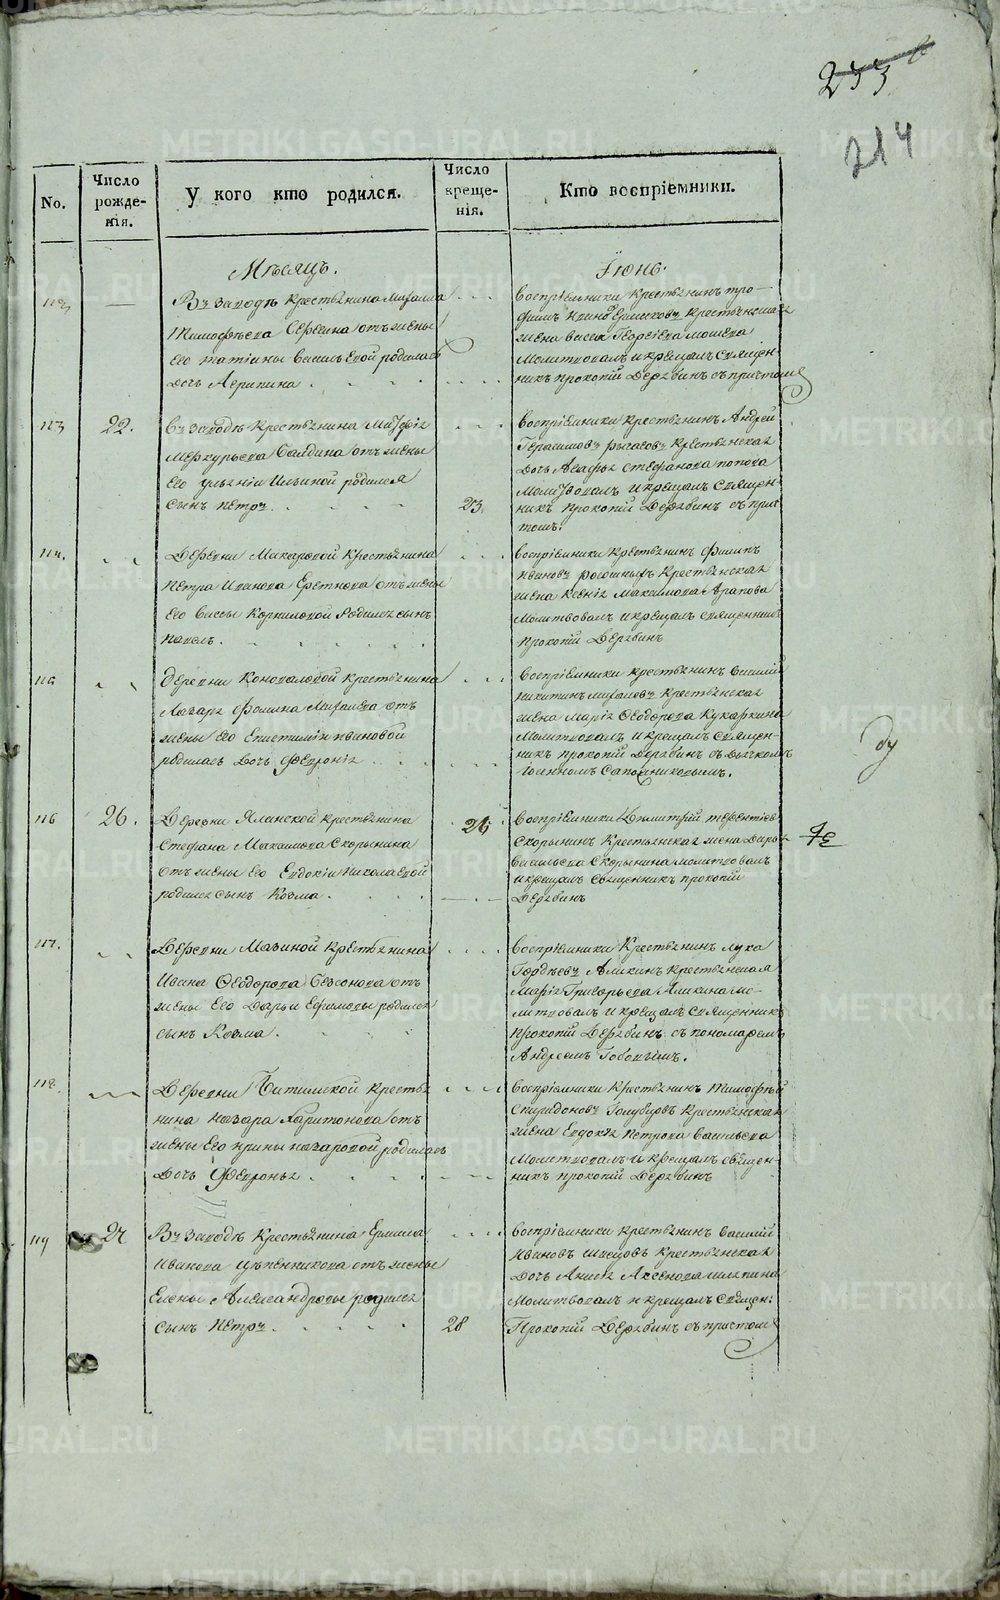 233
214
No.
Число рожденія.
У кого кто родился.
Число крещенія.
Кто воспріемники.
Мѣсяцъ.
Іюнь.
112
Въ заводѣ крестьянина Михаила
Тимофѣева отъ жены
его татіаны василъевой родилась
дочь Агрипина
воспріемники крестьянинъ тро-
фимъ крестьянская
жена васса Георгіева
молитвовалъ и крещалъ священ-
никъ прокопій Дерябинъ съ причтомъ
113
22.
въ заводѣ крестьянина
Меркурьева отъ жены
его Ильиной родился
сынъ петръ.
23.
воспріемники крестьянинъ Андрей
Герасимовъ крестьянская
дочь Агафья стефанова попова
молитвовалъ и крещалъ священ-
никъ прокопій Дерябинъ съ прич-
томъ.
114.
Деревни Макаровой крестьянина
петра Иванова отъ жены
его вассы Корниловой родился сынъ
павелъ.
воспріемники крестьянинъ филипъ
ивановъ крестьянская
жена ксенія максимова Арапова
молитвовалъ и крещалъ священникъ
прокопій Дерябинъ
115
деревни Коноваловой крестьянина
Лазаря Фомина отъ
жены его Епистиміи ивановой
родилась дочь Февронія
воспріемники крестьянинъ василій
никитинъ крестьянская
жена марія Феодорова Кукаркина
молитвовалъ и крещалъ священ-
никъ прокопій Дерябинъ съ дьячкомъ
Іоанномъ Сапожниковымъ.
ду
116
26.
Деревни Ялинской крестьянина
Стефана Максимова Скорынина
отъ жены его Евдокіи николаевой
родился сынъ Козма.
26
воспріемники Димитрій терентіевъ
Скорынинъ крестьянская жена Дарья
васильева Скорынина молитвовалъ
и крещалъ священникъ прокопій
Дерябинъ
117.
Деревни Мазиной крестьянина
Ивана Феодорова Безсонова отъ
жены его Дарьи Ефимовы родился
сынъ Козма.
воспріемники крестьянинъ лука
Гордѣевъ Аликинъ крестьянская
марія Григорьева Аликина мо-
литвовалъ и крещалъ священникъ
прокопій Дерябинъ съ пономаремъ
Андреемъ
118.
Деревни крестья
нина назара Харитонова отъ
жены его ирины назаровой родилась
дочь Февронья
воспріемники крестьянинъ тимофѣй
спиридоновъ Голубцовъ крестьянская
жена Евдокія петрова васильева
молитвовалъ и крещалъ священ-
никъ прокопій Дерябинъ
119
27
Въ заводѣ крестьянина Ермила
Иванова отъ жены
Елены Александровы родился
сынъ петръ.
28
воспріемники крестьянинъ василій
ивановъ швецовъ крестьянская
дочь Анисья Аксенова
молитвовалъ и крещалъ священ:
Прокопій Дерябинъ съ причтомъ
METRIKI.GASO-URAL.RU